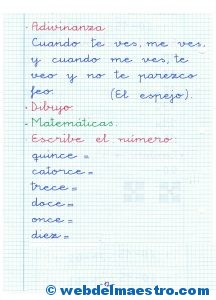 · Adivinanza
Cuando te ves, me ves,
y cuando me ves, te
veo y no te parezco
feo. (El espejo).
· Dibujo.
· Matemáticas.
· Escribe el número:
quince =
catorce =
trece =
doce =
once =
diez =
© webdelmaestro.com